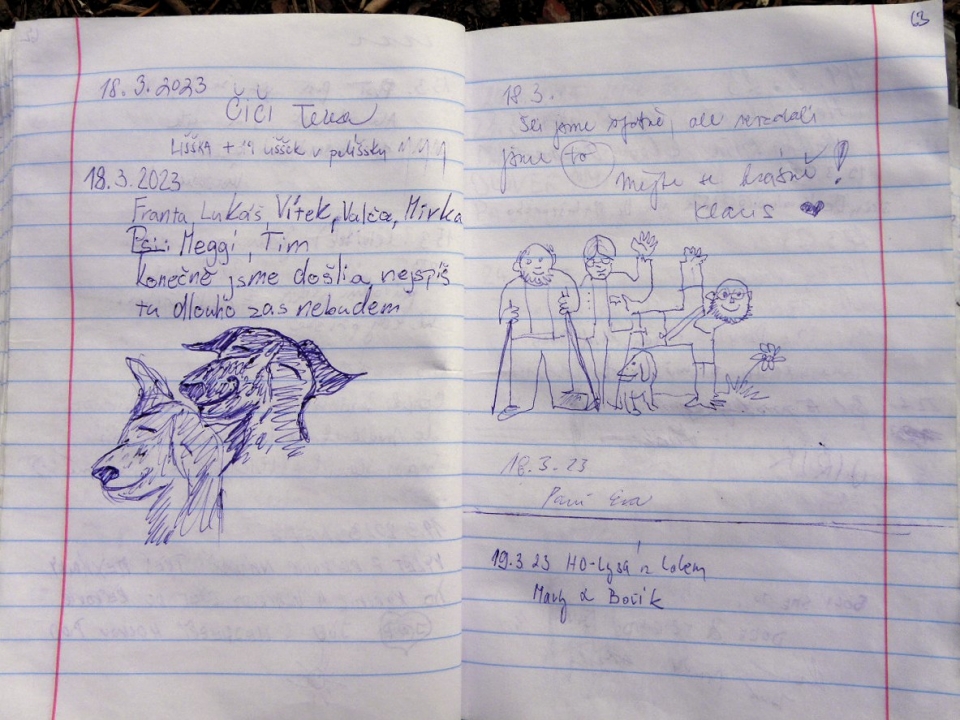 18. 3. 2023
Čiči Tlua
LIŠŠKA + 19 LIŠŠČK v pelíšku
18. 3. 2023
Franta, Lukáš, Vítek, Valča, Mirka
Psi: Meggi, Tim
konečně jsme došli a nejspíš
tu dlouho zas nebudem
63
18 3.
Šli jsme špatně, ale nevzdali
jsme to
Mějte se krásně!
Klaris
18. 3. 23
Paní Eva
19.3 23 HO-Lysá n Labem
& Bořík